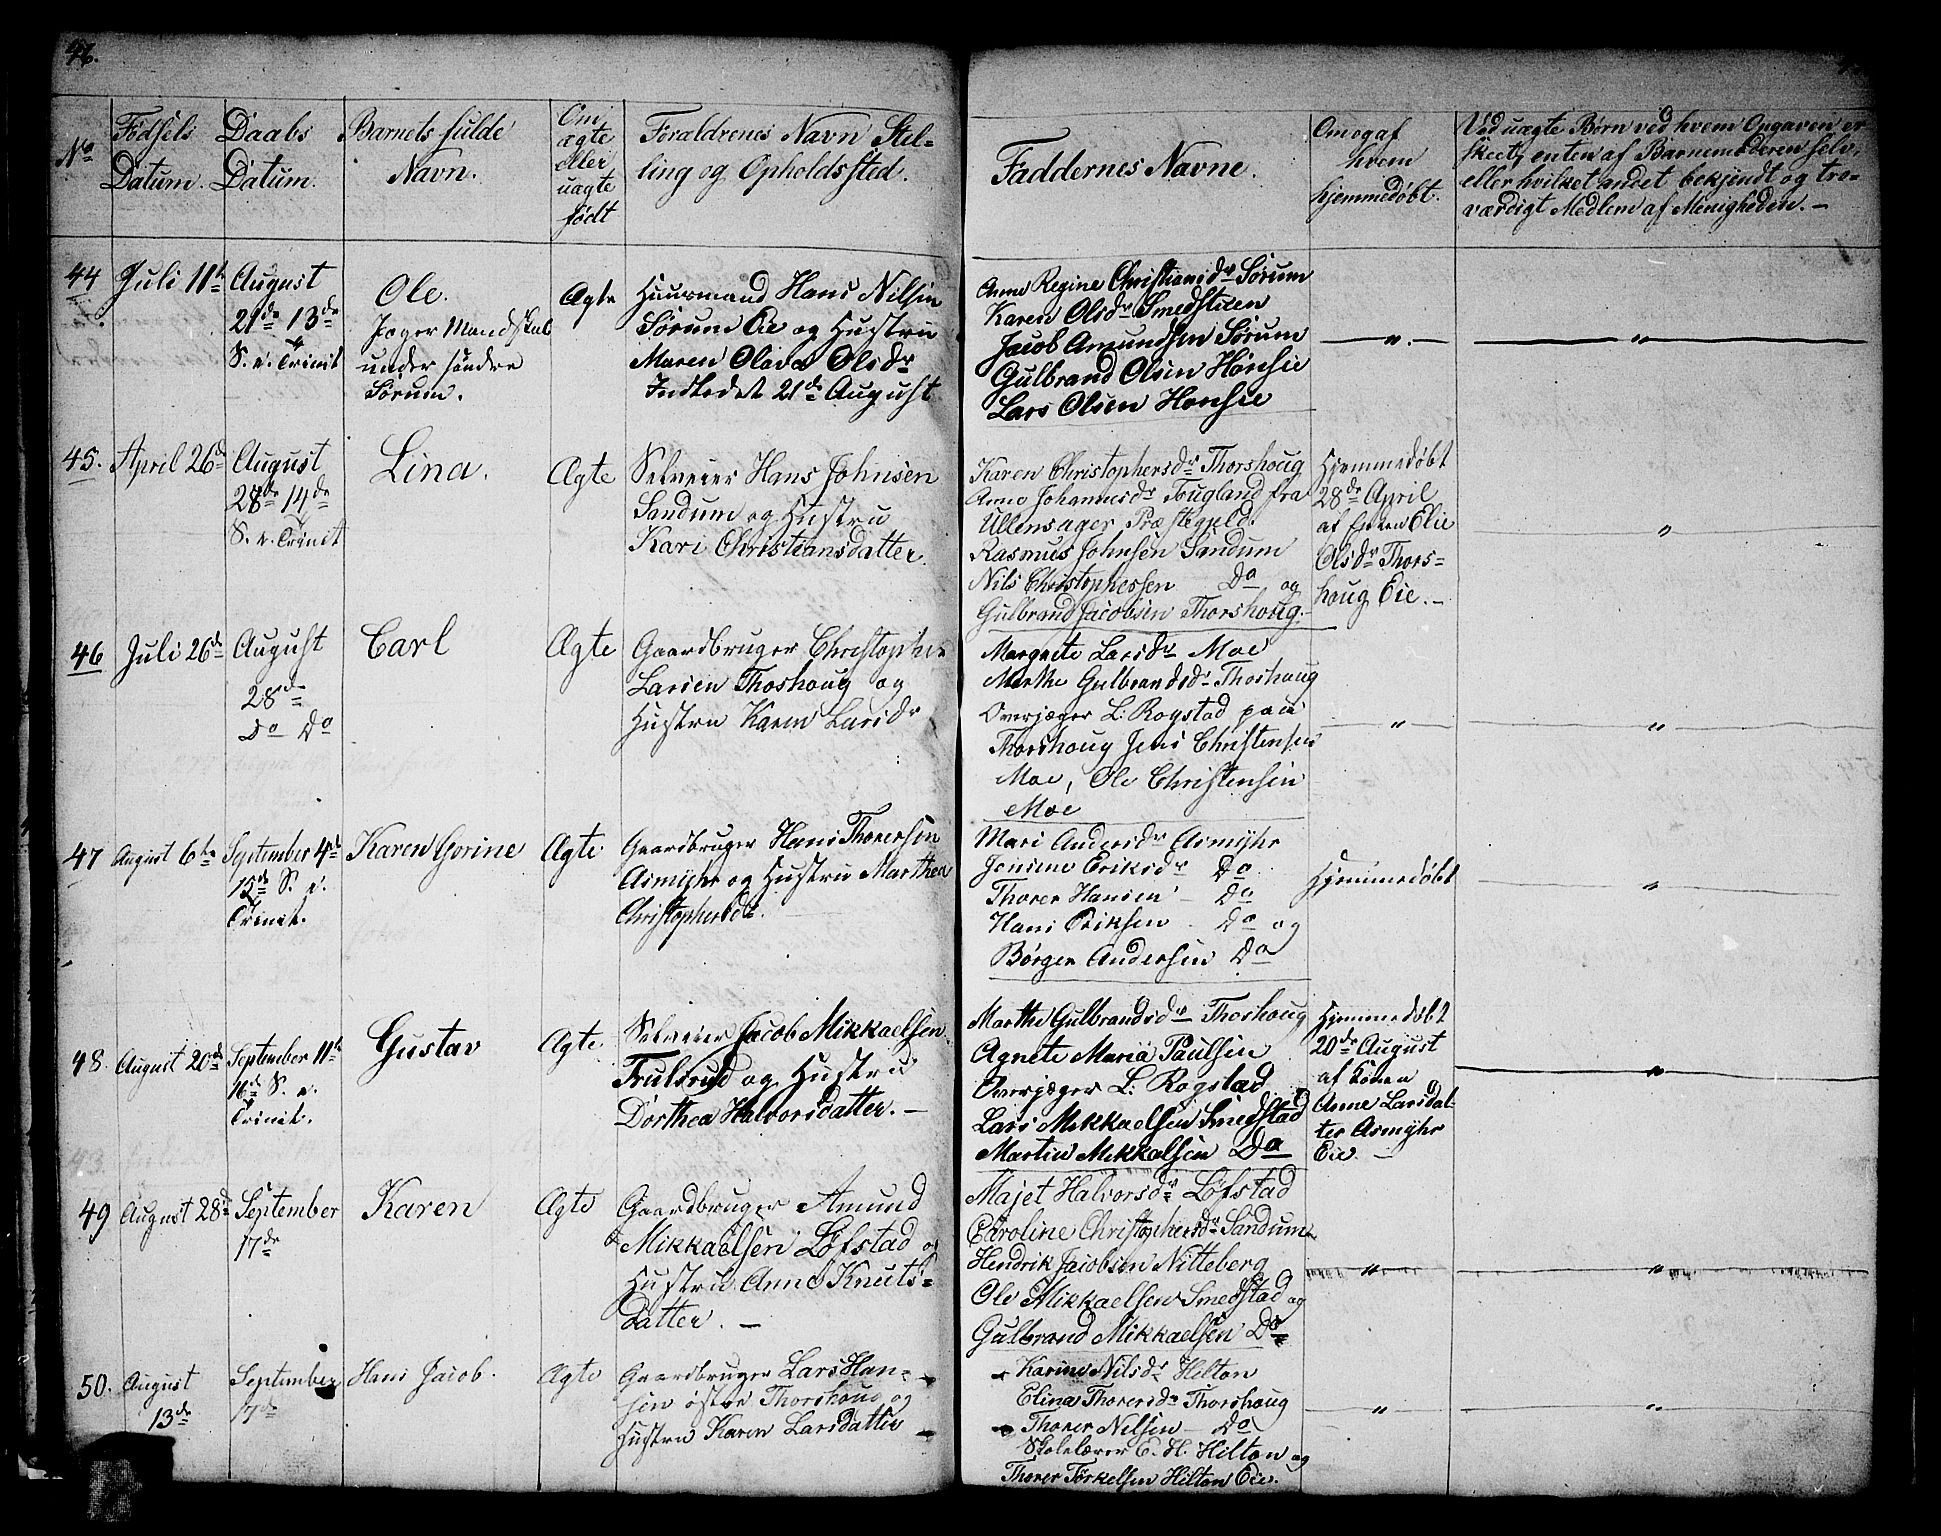 46.
No
Fødsels Datum.
Daabs Datum.
Barnets fulde Navn.
Om ægte eller uægte født
Forældrenes Navn Stel-
ling og Opholdssted.
Faddernes Navne.
Om og af hvem hjemmedøbt.
Ved uægte Børn ved hvem Opgaven er
skeet, enten af Barnemoderen selv,
eller hvilket andet bekjendt og tro-
værdigt Medlem af Menigheden. —
44
Juli 11te
August
21de 13de
S. e. Trinit
Ole.
Jæger Mandskab
under søndre
Sørum.
Ægte
Huusmand Hans Nilsen
Sørum Eie og Hustru
Maren Olava Olsdr
Indledet 21de August
Anne Regine Christiansdr Sørum
Karen Olsdr Smedstuen
Jacob Amundsen Sørum
Gulbrand Olsen Hønsie
Lars Olsen Hønsie
— " . —
— " —
45.
April 26de
August
28de 14de
S. e. Trinit
Lina.
Ægte
Selveier Hans Johnsen
Sandum og Hustru
Kari Christiansdatter.
Karen Christophersdr Thorshoug
Anne Johannesdr Fougland fra
Ullensager Præstegjeld.
Rasmus Johnsen Sandum
Nils Christophessen Do og
Gulbrand Jacobsen Thorshoug.
Hjemmedøbt
28de April
af Enken Elie
Olsdr Thors-
houg Eie. —
"
46
Juli 26de
August
28de
Do Do
Carl
Ægte
Gaardbruger Christopher
Larsen Thoshoug og
Hustru Karen Larsdr
Margrete Larsdr Moe
Marthe Gulbrandsdr Thoshoug
Overjæger L: Rogstad paa
Thorshoug Jens Christensen
Moe, Ole Christensen
Moe
"
"
47
August 6te
September 4de
15de S. e.
Trinit.
Karen Gorine
Ægte
Gaardbruger Hans Thorersen
Asmyhr og Hustru Marthea
Christophersdr.
Mari Andersdr Asmyhr
Jensine Eriksdr Do
Thorer Hansen Do
Hans Eriksen Do og
Børger Andersen Do
Hjemmedøbt
"
48.
August 20de
September 11te
16de S. e.
Trinit.
Gustav
Ægte
Selveier Jacob Mikkaelsen
Frulsrud og Hustru
Dorthea Halvorsdatter. —
Marthe Gulbrandsdr Thoshoug
Agnete Maria Paulsen
Overjæger L: Rogstad
Lars Mikkaelsen Smedstad
Martin Mikkalsen Do
Hjemmedøbt
20de August
af Konen
Anne Larsdat-
ter Asmyhr
Eie. —
"
49
August 28de
September
17de
Karen
Ægte
Gaardbruger Amund
Mikkaelsen Løfstad og
Hustru Anne Knuts-
datter. —
Majet Halvorsdr Løfstad
Caroline Christophersdr Sandum
Hendrik Jacobsen Nitteberg
Ole Mikkaelsen Smedstad og
Gulbrand Mikkaelsen Do
"
"
50.
August
13de
September
17de
Hans Jacob.
Ægte
Gaardbruger Lars Han-
sen østre Thorshoug og
Hustru Karen Larsdatter —
Karine Nilsdr Hilton
Elina Thorersdr Thorshoug
Thorer Nilsen Do
Skolelærer E. H. Hilton og
Thorer Torkelsen Hilton Eie.
"
"